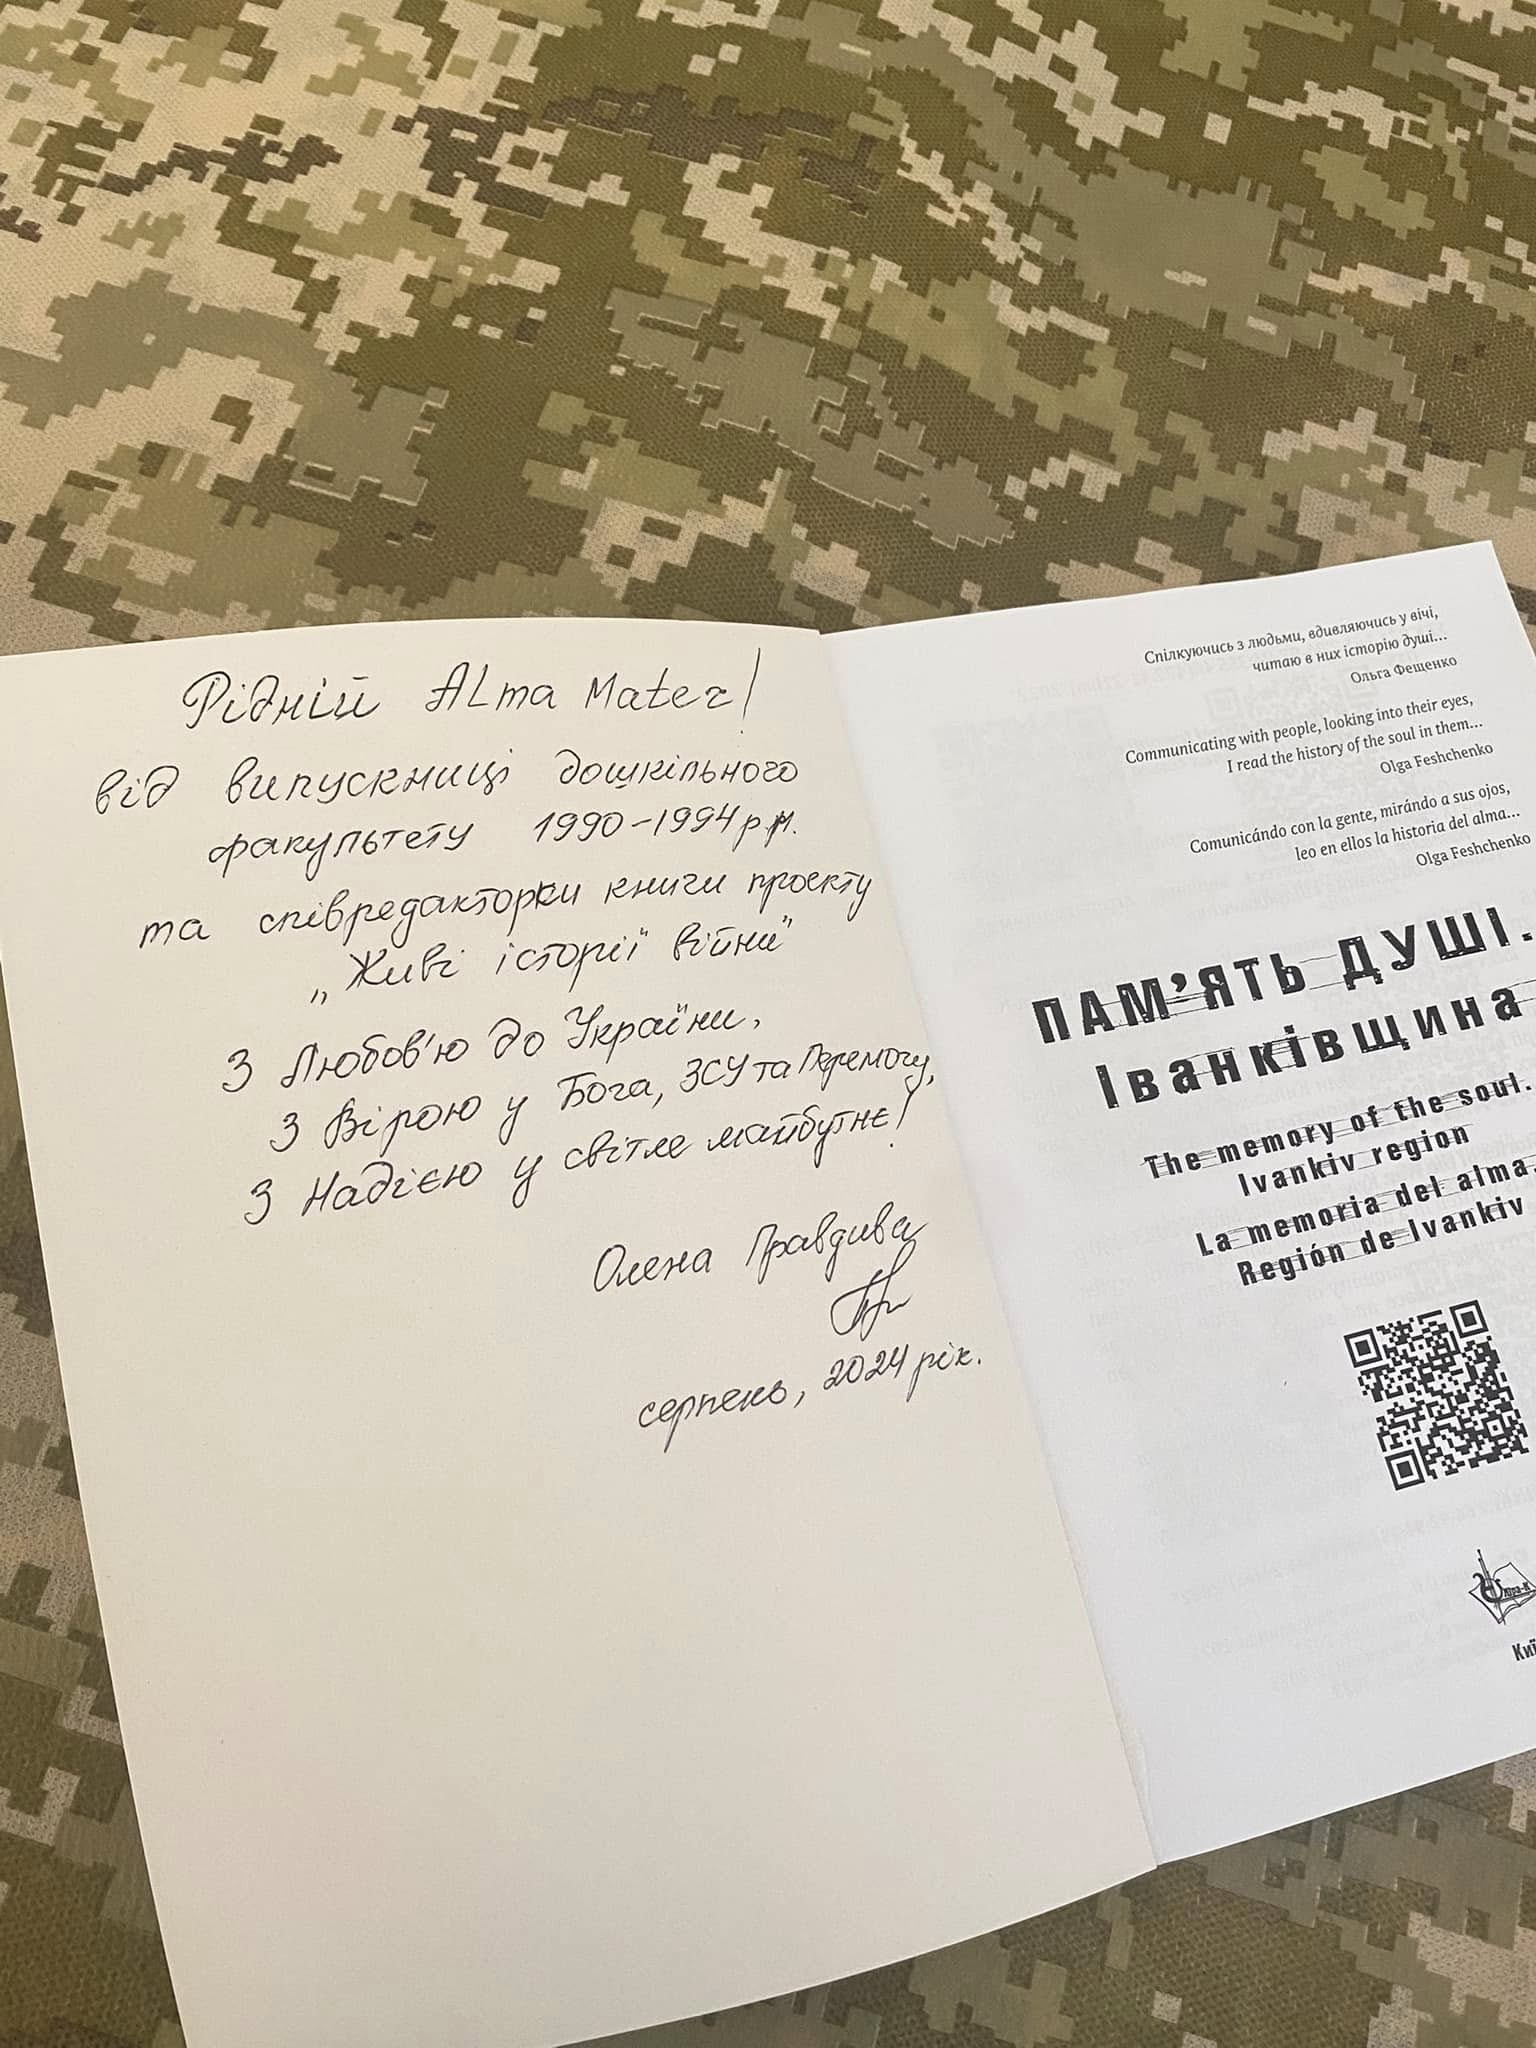 Рідній Alma Mater!
від випускниці дошкільного
факультету 1990-1994 р.н.
та співредакторки книги проєкту
„Живі історії війни"
З Любов'ю до України,
З Вірою у Бога, ЗСУ та Перемогу,
З Надією у світле майбутнє!
Олена Правдива
серпень, 2024 рік.
Спілкуючись з людьми, вдивляючись у вічі,
читаю в них історію душі...
Ольга Фещенко
Communicating with people, looking into their eyes,
I read the history of the soul in them...
Olga Feshchenko
Comunicándo con la gente, mirándo a sus ojos,
leo en ellos la historia del alma...
Olga Feshchenko
ПАМ'ЯТЬ ДУШІ.
Іванківщина
The memory of the soul.
Ivankiv region
La memoria del alma.
Región de Ivankiv